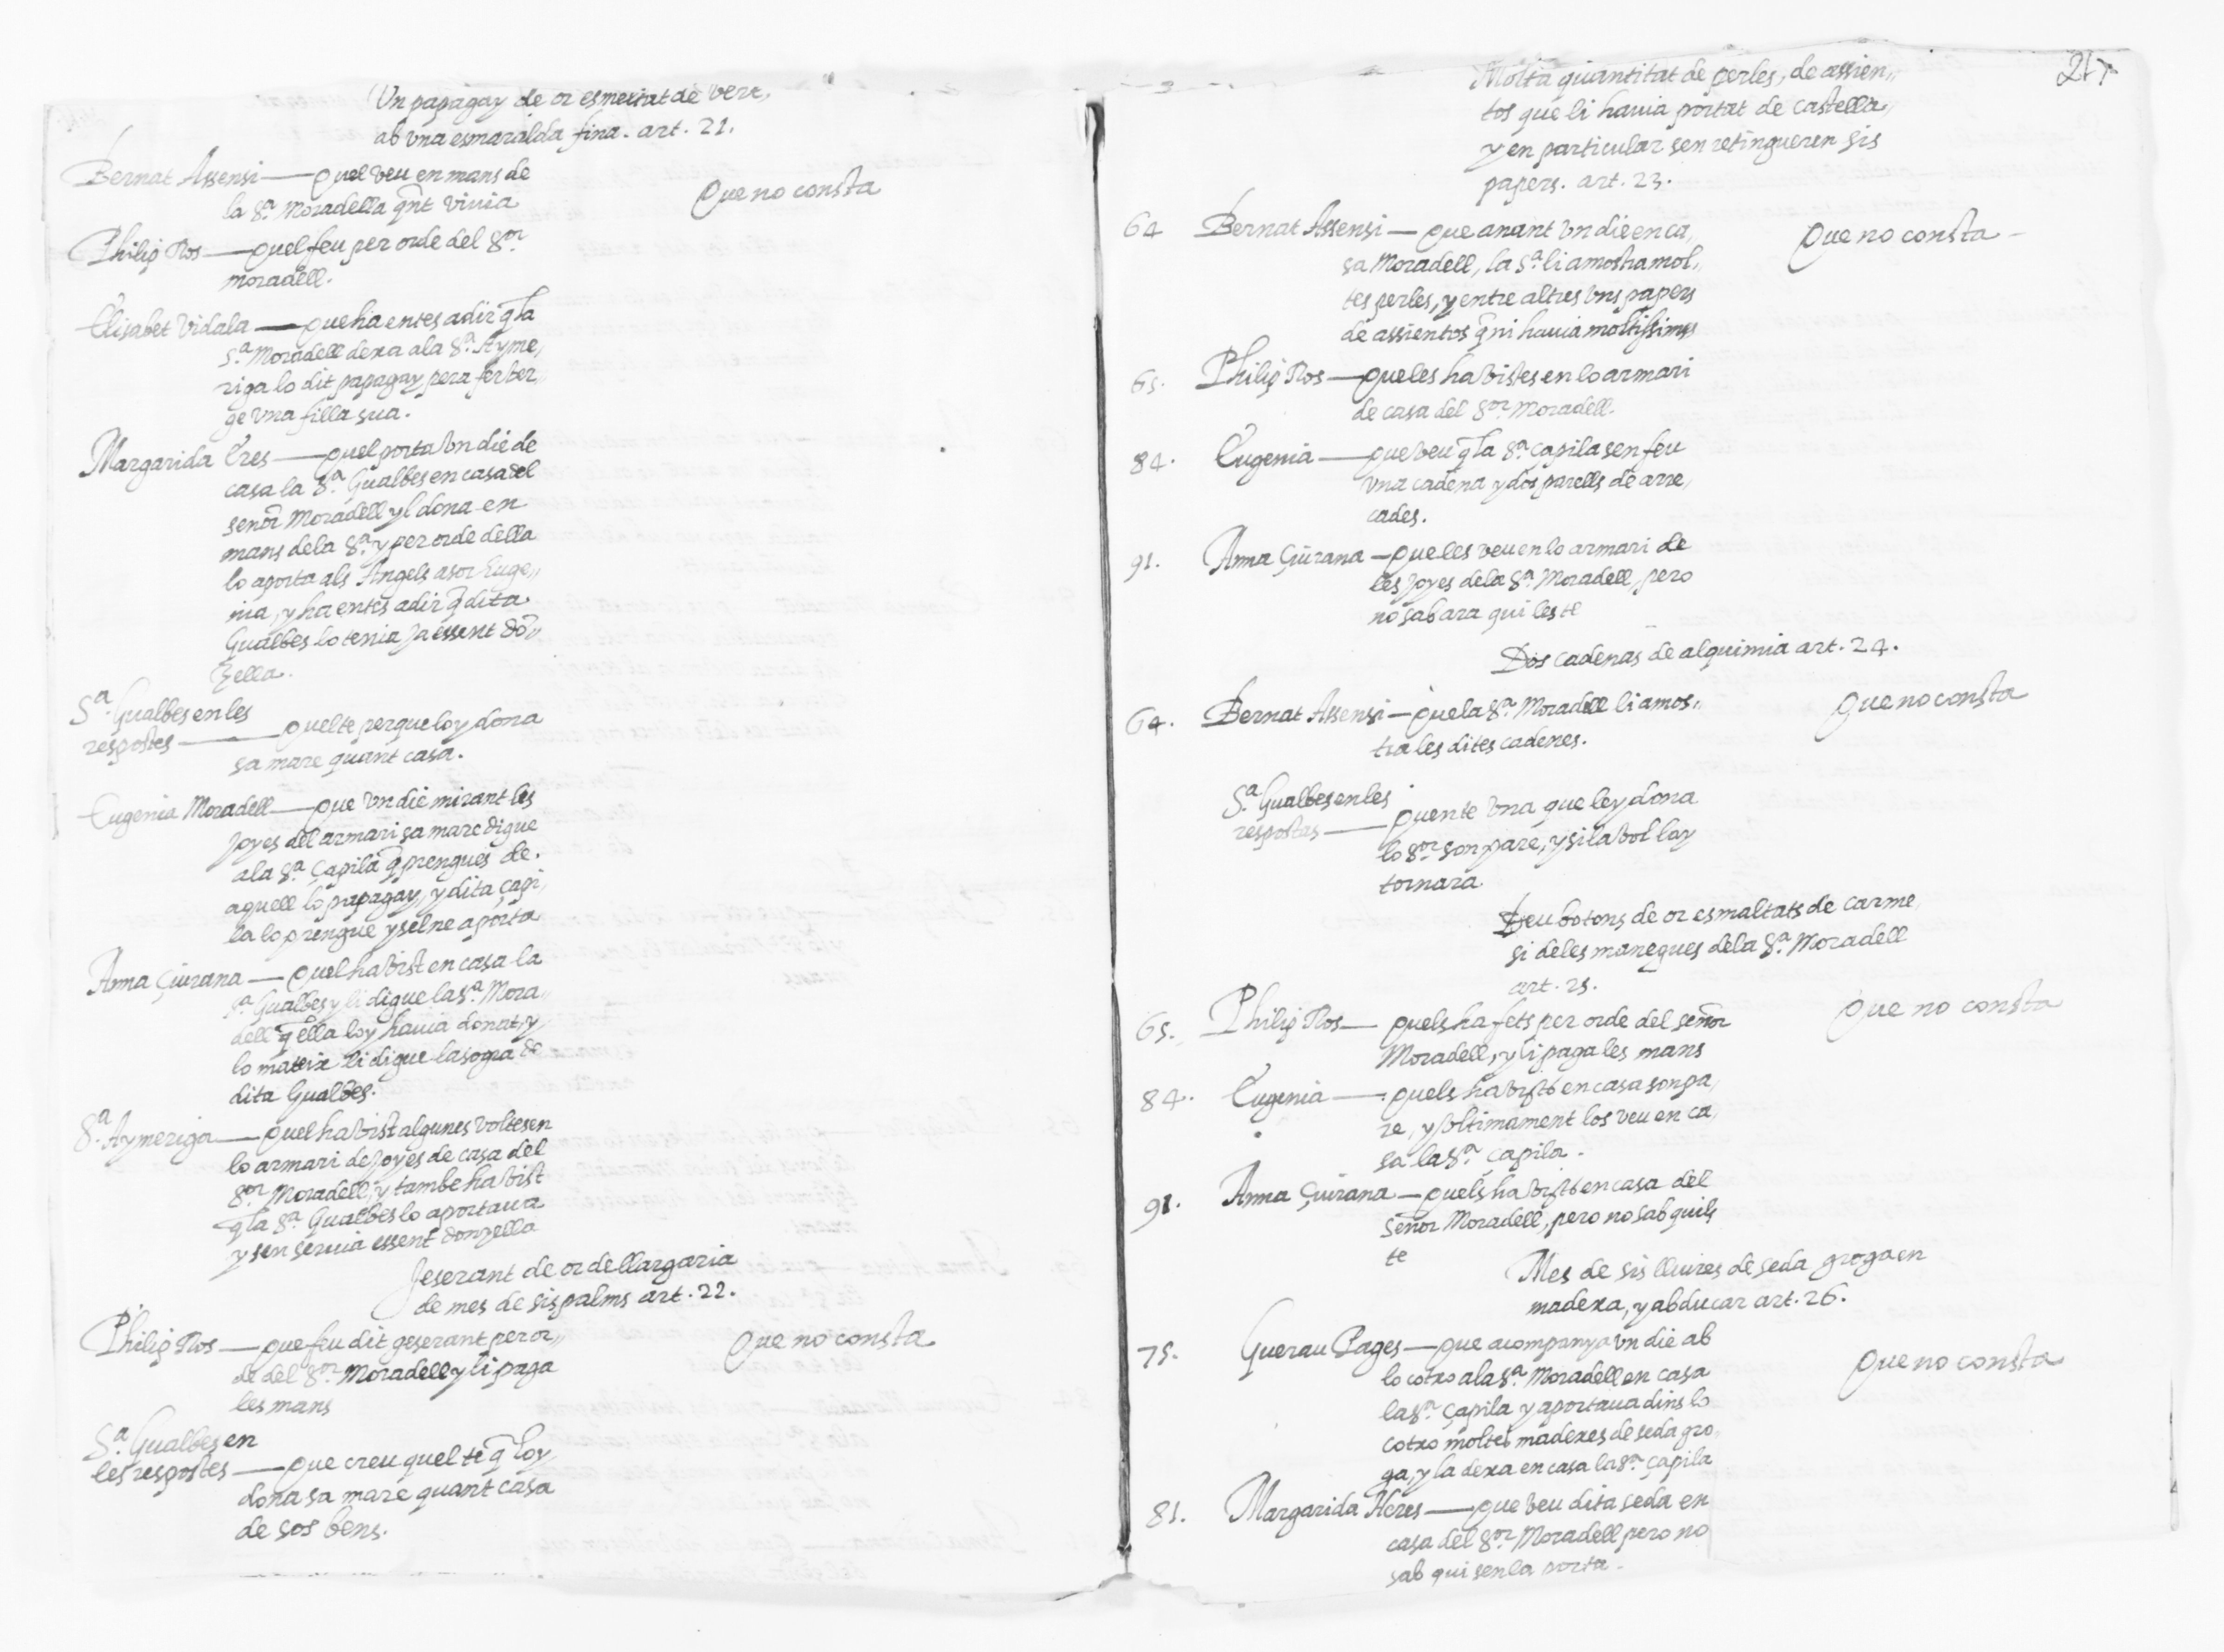 Un papagay de or esmeltat de vert,
ab vna esmaralda fina. art. 21.
Bernat Assensi — Quel veu en mans de
la Sª. Moradella qnt viuia
Que no consta
Philip Ros — Quel feu per orde del Sor.
moradell.
Elisabet Vidala — Que ha entes a dir q̄ la
Sª. Moradell dexa ala Sª. Ayme,
riga lo dit papagay pera fer ber,
ge vna filla sua.
Margarida Eres — Quel porta vn die de
casa la Sª. Gualbes en casa del
señor Moradell yl dona en
mans dela Sª. y per orde della
lo aporta als Angels a sor Euge,,
nia, y ha entes a dir q̄ dita
Gualbes lo tenia ja essent dō,,
zella.
Sª. Gualbes en les
respostes — Quel te perque loy dona
sa mare quant casa.
Eugenia Moradell — Que vn die mirant les
Joyes del armari sa mare digue
ala Sª. Çapila q̄ prengues de.
aquell lo papagay, y dita çapi,
la lo prengue y sel ne aporta
Anna Çiurana — Quel ha vist en casa la
Sª. Gualbes y li digue la Sª. Mora,
dell q̄ ella loy hauia donat, y
lo mateix li digue la sogra de
dita Gualbes.
Sª. Aymeriga — Quel ha vist algunes voltes en
lo armari de Joyes de casa del
Sor. Moradell, y tambe ha vist
q̄ la Sª. Gualbes lo aportaua
y sen seruia essent donzella
Jeserant de or de llargaria
de mes de sis palms art. 22.
Philip Ros — que feu dit geserant per or,,
de del Sor. Moradell y li paga
les mans
Que no consta
Sª. Gualbes en
les respostes — Que creu quel te q̄ loy
dona sa mare quant casa
de sos bens.
217
Molta quantitat de perles, de assien,,
tos que li hauia portat de castella,
y en particular sen retingueren sis
papers. art. 23.
64 Bernat Assensi — Que anant vn die en ca,
sa Moradell, la Sª. li amostra mol,
tes perles, y entre altres vns papers
de assientos q̄ ni hauia moltissims
Que no consta
65. Philip Ros — Que les ha vistes en lo armari
de casa del Sor. Moradell.
84. Eugenia — Que veu q̄ la Sª. Çapila sen feu
vna cadena y dos parells de arre,
cades.
91. Anna Çiurana — Que les veu en lo armari de
les Joyes dela Sª. Moradell, pero
no sab ara qui les te
Dos cadenas de alquimia art. 24.
64. Bernat Assensi — Que la Sª. Moradell li amos,,
tra les dites cadenes.
Que no consta
Sª. Gualbes en les
respostas — Quen te vna que ley dona
lo Sor. son pare, y si la vol lay
tornara
Deu botons de or esmaltats de carme,
si deles manegues dela Sª. Moradell
art. 25.
65. Philip Ros — Quels ha fets per orde del señor
Moradell, y li paga les mans
Que no consta
84. Eugenia — Quels ha vists en casa son pa,
re, y vltimament los veu en ca,
sa la Sª. Çapila.
91. Anna Çiurana — Quels ha vists en casa del
Señor Moradell, pero no sab quils
te
Mes de sis lliures de seda groga en
madexa, y abducar art. 26.
75. Guerau Pages — Que acompanya vn die ab
lo cotxo ala Sª. Moradell en casa
la Sª. Çapila y aportaua dins lo
cotxo moltes madexes de seda gro,
ga, y la dexa en casa la Sª. Çapila
Que no consta
81. Margarida Heres — Que veu dita seda en
casa del Sor. Moradell pero no
sab qui sen la porta.